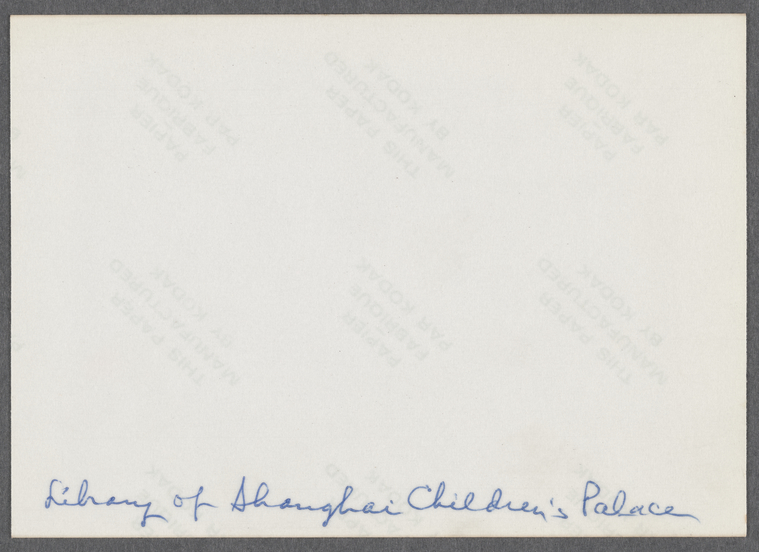 PAPIER
FABRIQUE
PAR KODAK
THIS PAPER
MANUFACTURED
BY KODAK
PAPIER
FABRIQUE
PAR KODAK
THIS PAPER
MANUFACTURED
BY KODAK
PAPIER
FABRIQUE
PAR KODAK
THIS PAPER
MANUFACTURED
BY KODAK
Library of Shanghai Children's Palace